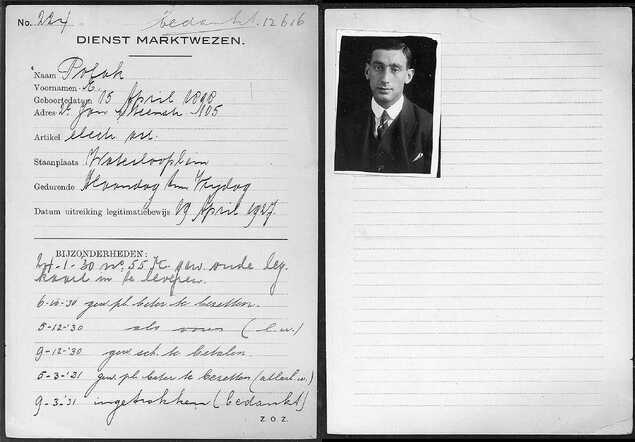 No. 224 bedankt. 12616
DIENST MARKTWEZEN.
Naam Polak
Voornamen E.
Geboortedatum 15 April 1898
Adres 2e Jan Steenstr. 105
Artikel elect. art.
Staanplaats Waterlooplein
Gedurende Maandag t/m Vrydag
Datum uitreiking legitimatiebewijs 19 April 1927.
BIJZONDERHEDEN:
24-1-30 no. 55 K. gew. oude leg.
kaart in te leveren.
6-10-30 gew. pl. beter te bezetten.
5-12-'30 als voren (l.w.)
9-12-'30 gew. sch. te betalen.
5-3-'31 gew. pl. beter te bezetten (w.)
9-3-'31 ingetrokken (bedankt)
Z.O.Z.